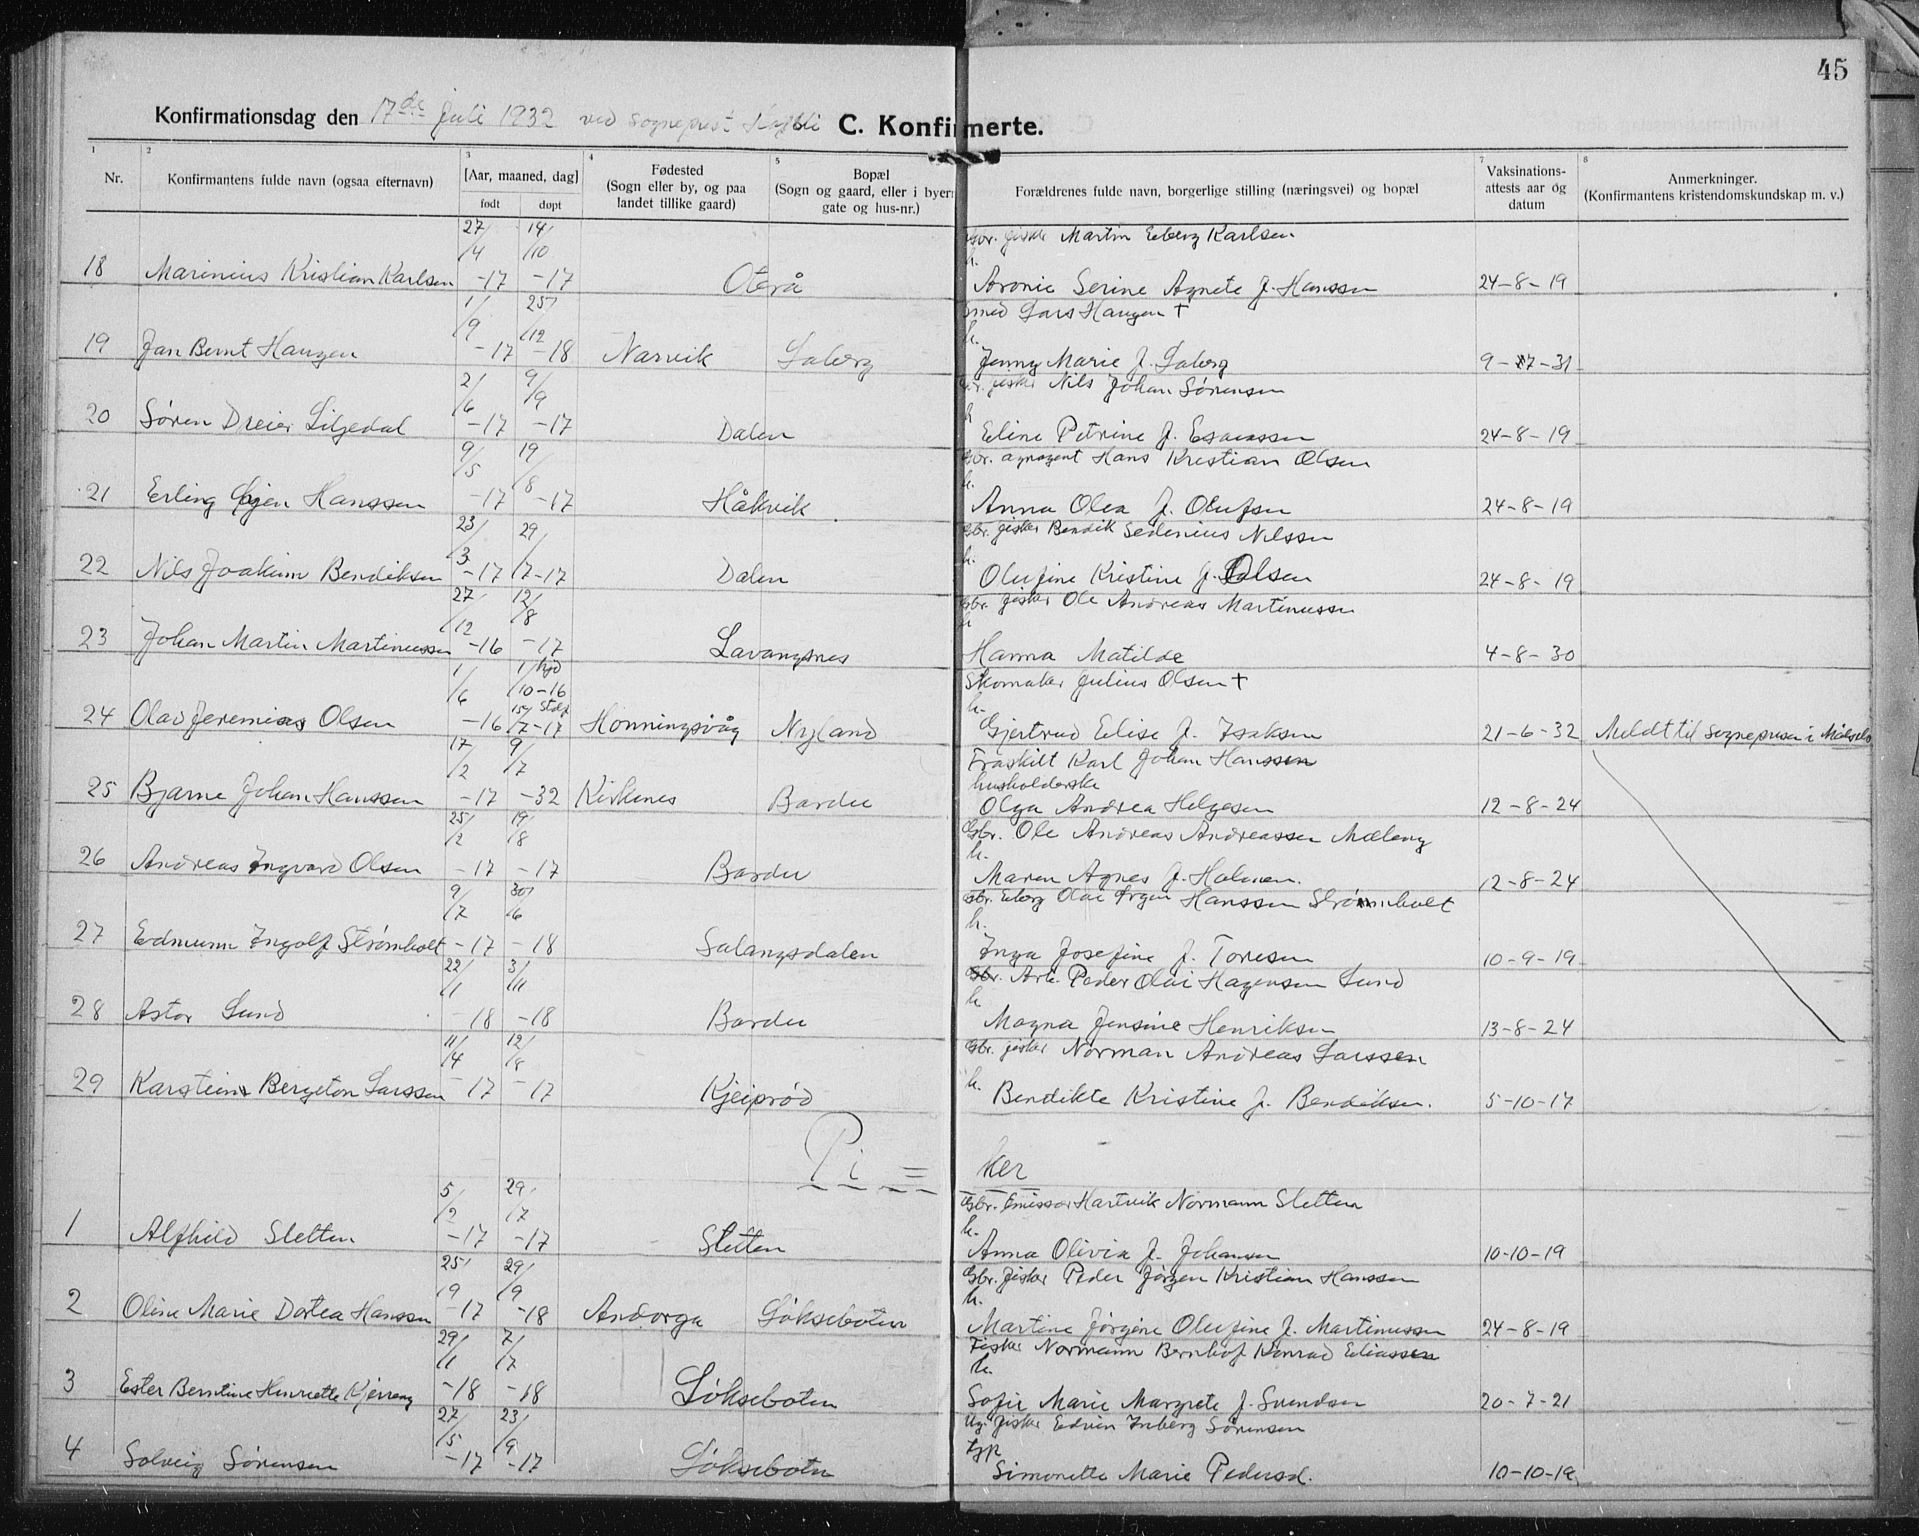 45
Konfirmationsdag den 17de Juli 1932 ved sogneprest C. Konfirmerte.
1 2 3 4 5 7 8
Nr. Konfirmantens fulde navn (ogsaa efternavn) [Aar, maaned, dag] født døpt Fødested (Sogn eller by, og paa landet tillike gaard) Bopæl (Sogn og gaard, eller i byern gate og hus-nr.) Forældrenes fulde navn, borgerlige stilling (næringsvei) og bopæl Vaksinations-attests aar og datum Anmerkninger. (Konfirmantens kristendomskundskap m. v.)
Gbr. fisker Martin Eberg Karlsen
h.
18 Marinius Kristian Karlsen 27/4 -17 14/10 -17 Oterå Aronie Serine Agnete f. Hanssen 24-8-19
smed Lars Haugen †
h.
19 Jan Bernt Haugen 1/9 -17 25/12 -18 Narvik Laberg Jenny Marie f. Laberg 9-7-31
Gbr. fisker Nils Johan Sørensen
h
20 Søren Dreier Liljedal 2/6 -17 9/9 -17 Dalen Eline Petrine f. Esaiassen 24-8-19
Gbr. agnagent Hans Kristian Olsen
h.
21 Erling Hanssen 9/5 -17 19/8 -17 Håkvik Anna Olea f. Olufsen 24-8-19
Gbr. fisker Bendik Sedenius Nilssen
h.
22 Nils Joakim Bendiksen 23/3 -17 29/7 -17 Dalen Olufine Kristine f. Olsen 24-8-19
Gbr. fisker Ole Andreas Martinussen
h
23 Johan Martin Martinussen 27/12 -16 12/8 -17 Lavangsnes Hanna Matilde 4-8-30
Skomaker Julius Olsen †
h.
24 Olav Jeremias Olsen 1/6 -16 1/10-16 hjd 15/7-17 Honningsvåg Nyland Gjertrud Elise f. Isaksen 21-6-32 Meldt til sognepresten i Målselv
Fraskilt Karl Johan Hanssen
husholderske
25 Bjarne Johan Hanssen 17/2 -17 9/7 -32 Kirkenes Bardu Olga Andrea Helgesen 12-8-24
Gbr. Ole Andreas Andreassen Mæleng
h.
26 Andreas Ingvard Olsen 25/2 -17 19/8 -17 Bardu Maren Agnes f. Holmen. 12-8-24
Gbr. Eberg Olai Ørgen Hanssen Strømholt
h.
27 Edmunn Ingolf Strømholt 9/7 -17 30/6 -18 Salangsdalen Inga Josefine f. Toresen 10-9-19
Gbr. Arb. Peder Olai Hagensen Lund
h
28 Astor Lund 22/1 -18 3/11 -18 Bardu Magna Jensine Henriksen 13-8-24
Gbr. fisker Norman Andreas Larssen
h.
29 Karstein Bergeton Larssen 11/4 -17 12/8 -17 Kjeiprød Bendikte Kristine f. Bendiksen. 5-10-17
Pi = ker
Gbr. Emissær Hartvik Normann Sletten
h.
1 Alfhild Sletten 5/2 -17 29/7 -17 Sletten Anna Olivia f. Johansen 10-10-19
Gbr. fisker Peder Jørgen Kristian Hanssen
h.
2 Oline Marie Dortea Hanssen 25/9 -17 29/9 -18 Andorga Løkseboten Martine Jørgine Olufine f. Martinussen 24-8-19
Fisker Normann Bernhof Konrad Eliassen
h.
3 Ester Berntine Henriette Kjerreng 29/1 -18 7/7 -18 Løkseboten Sofie Marie Margrete f. Svendsen 20-7-21
Ug. fisker Edvin Inberg Sørensen
4 Solveig Sørensen 27/5 -17 23/9 -17 Løkseboten Simonette Marie Pedersd. 10-10-19